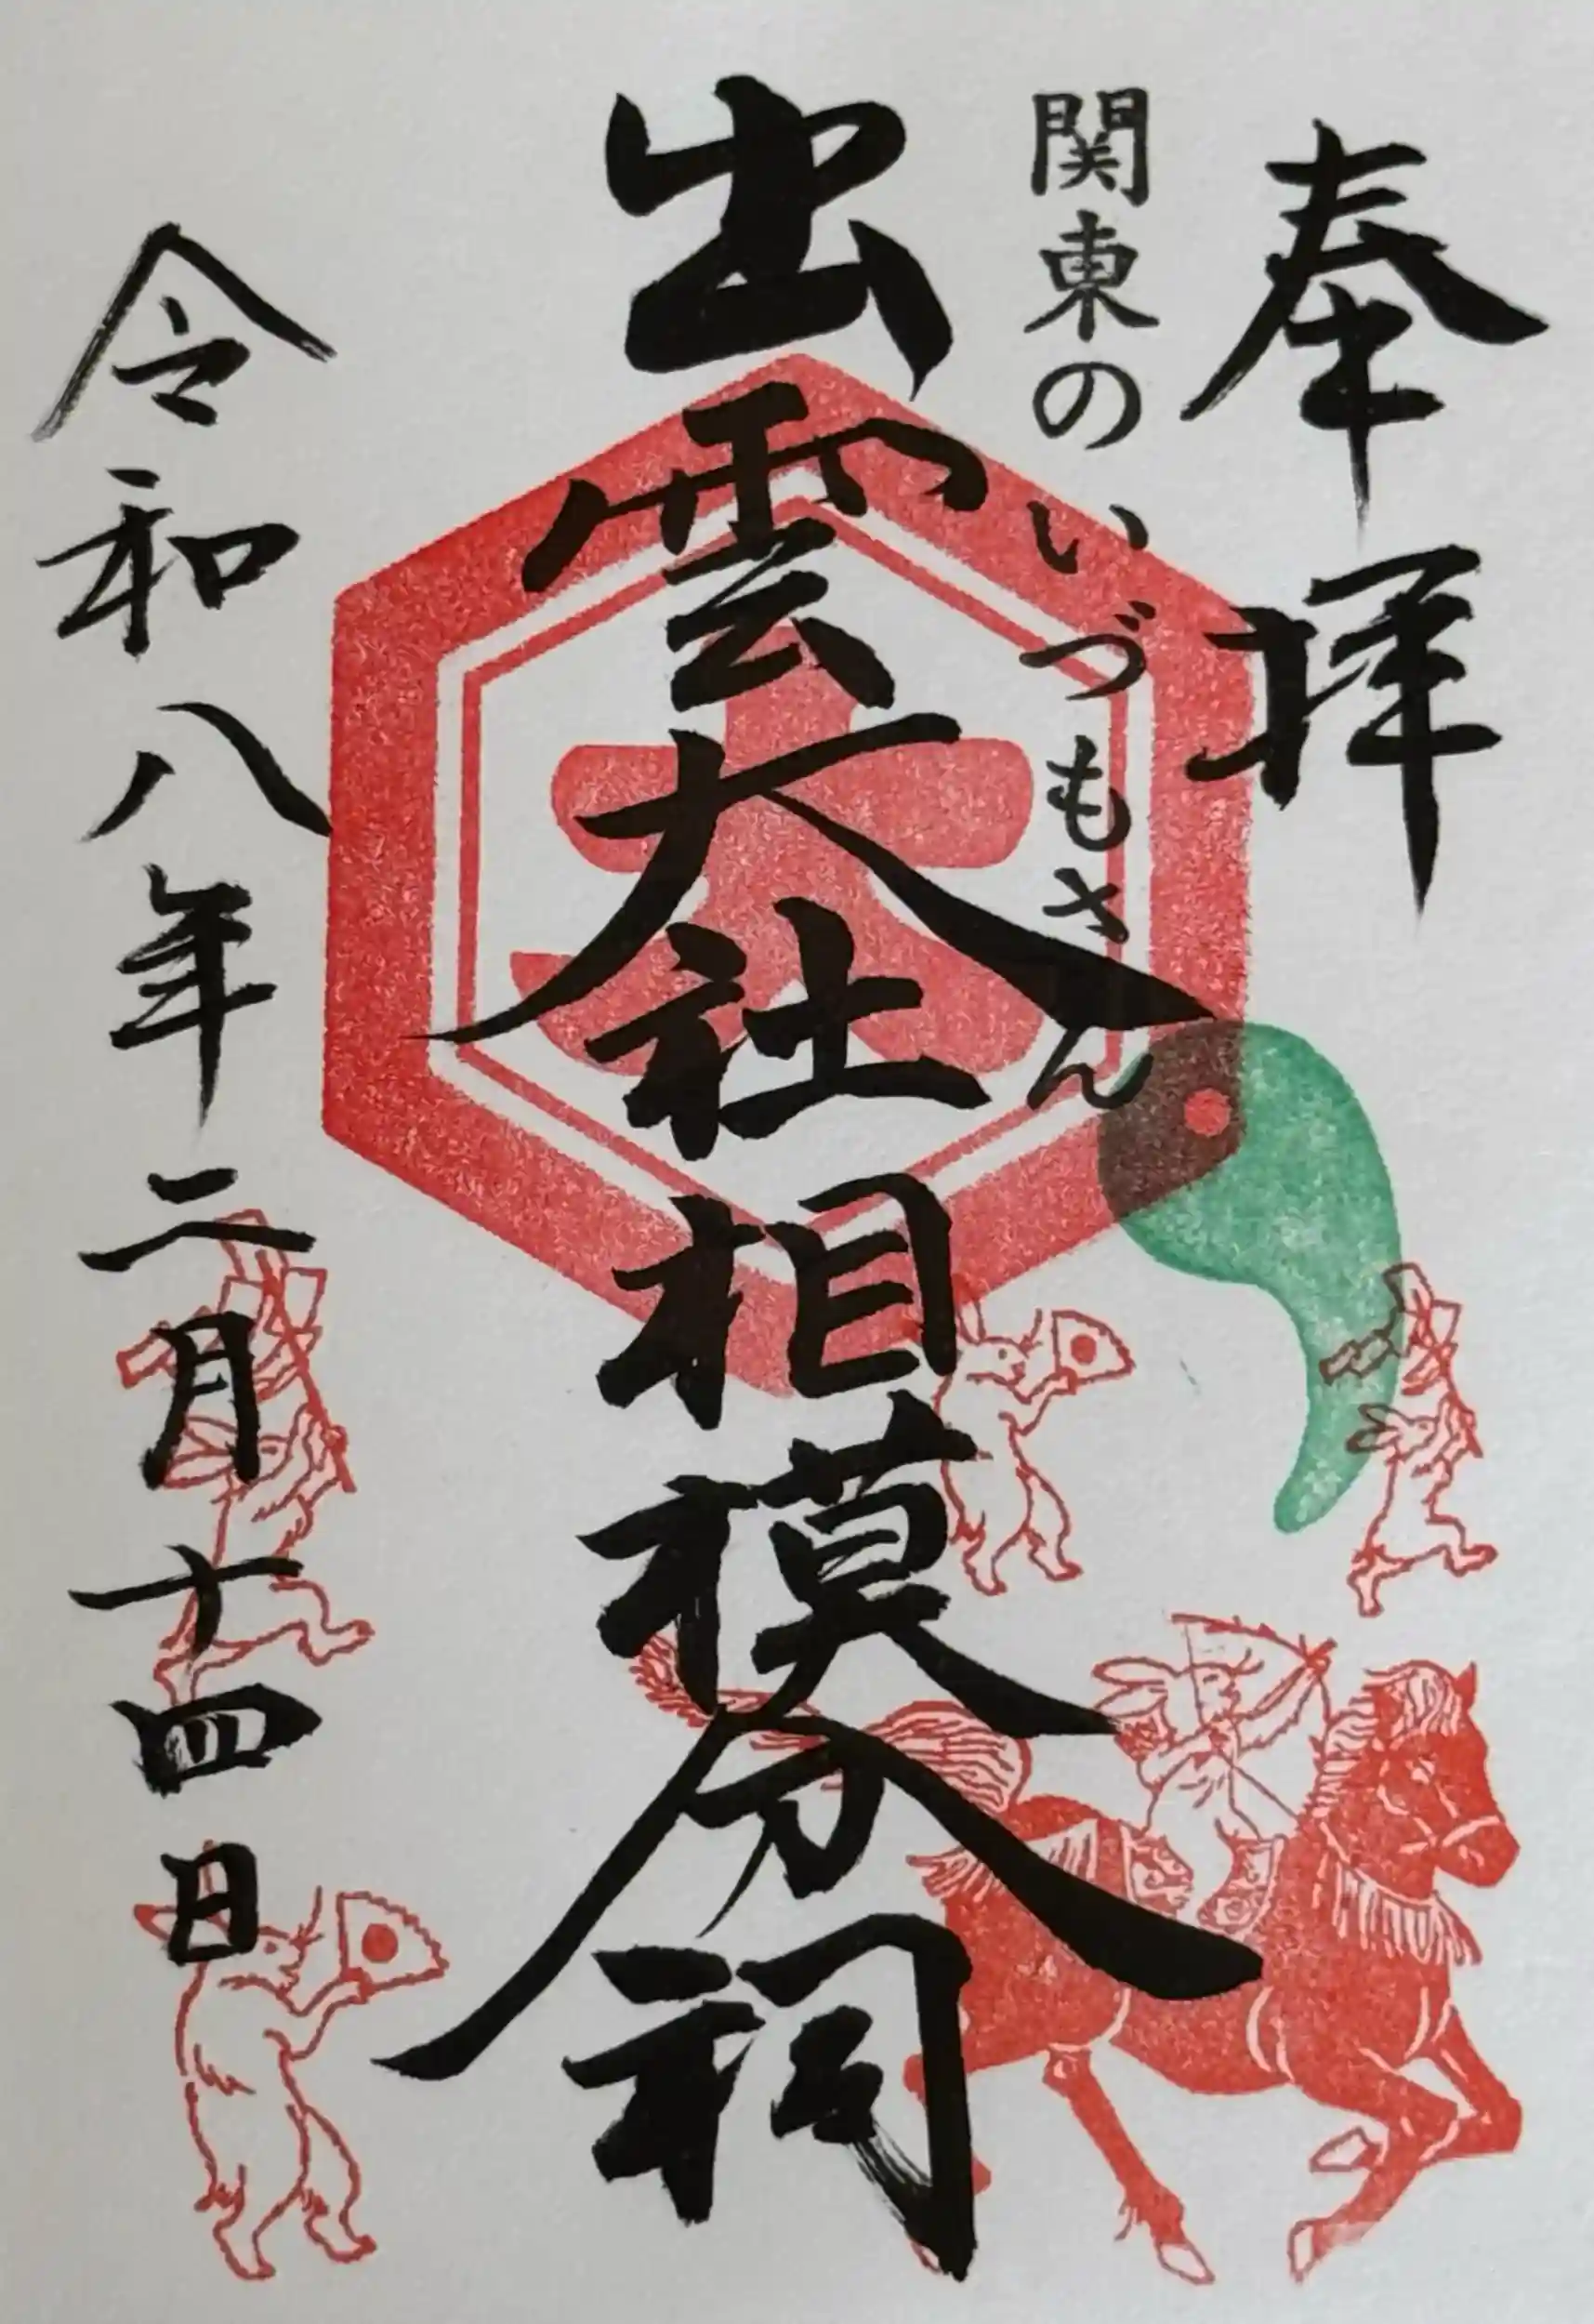 奉拝
関東のいづもさん
出雲大社相模分祠
大
令和八年二月十四日